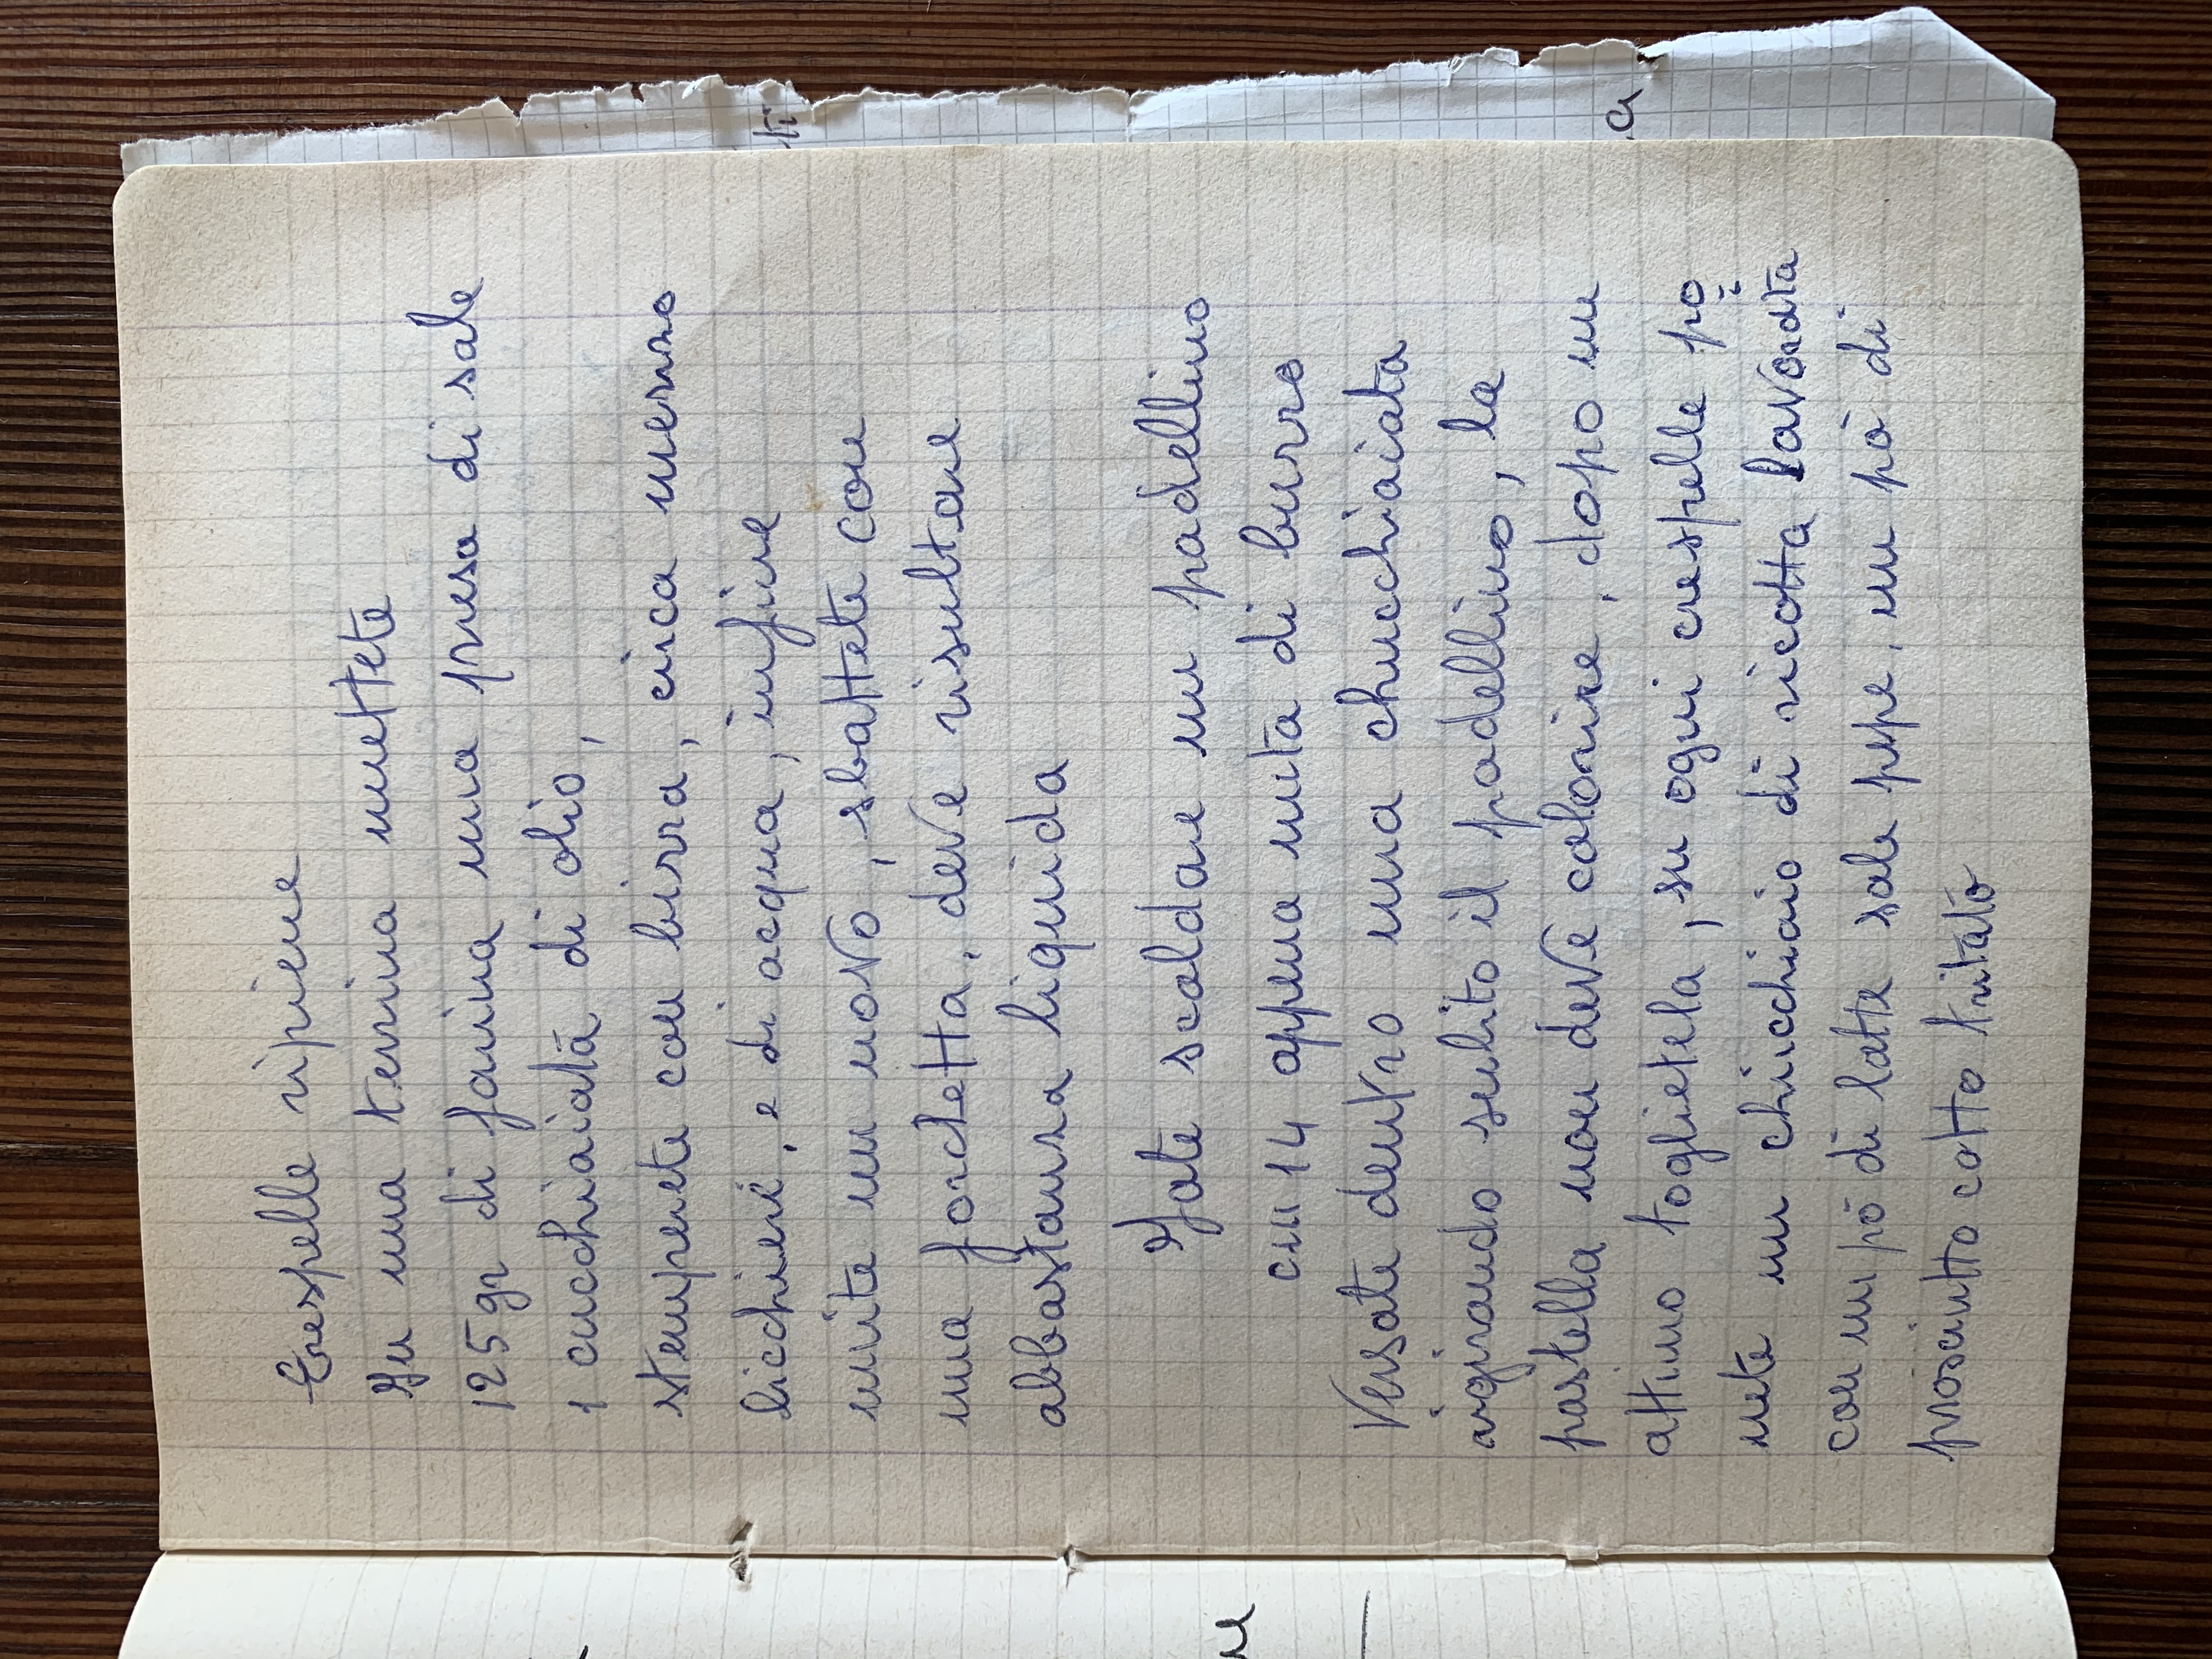 Crespelle ripiene
In una terrina mettete
125 gr di farina una presa di sale
1 cucchiaiata di olio,
stemperete con birra, circa mezzo
bicchiere, e di acqua, infine
unite un uovo, sbattete con
una forchetta, deve risultare
abbastanza liquida
Fate scaldare un padellino
cm 14 appena unta di burro
Versate dentro una chucchiaiata
rigirando subito il padellino, la
pastella non deve colorire, dopo un
attimo toglietela, su ogni crespelle po
nete un chucchiaio di ricotta lavorata
con un pò di latte sale pepe, un pò di
prosciutto cotto tritato
ti
a